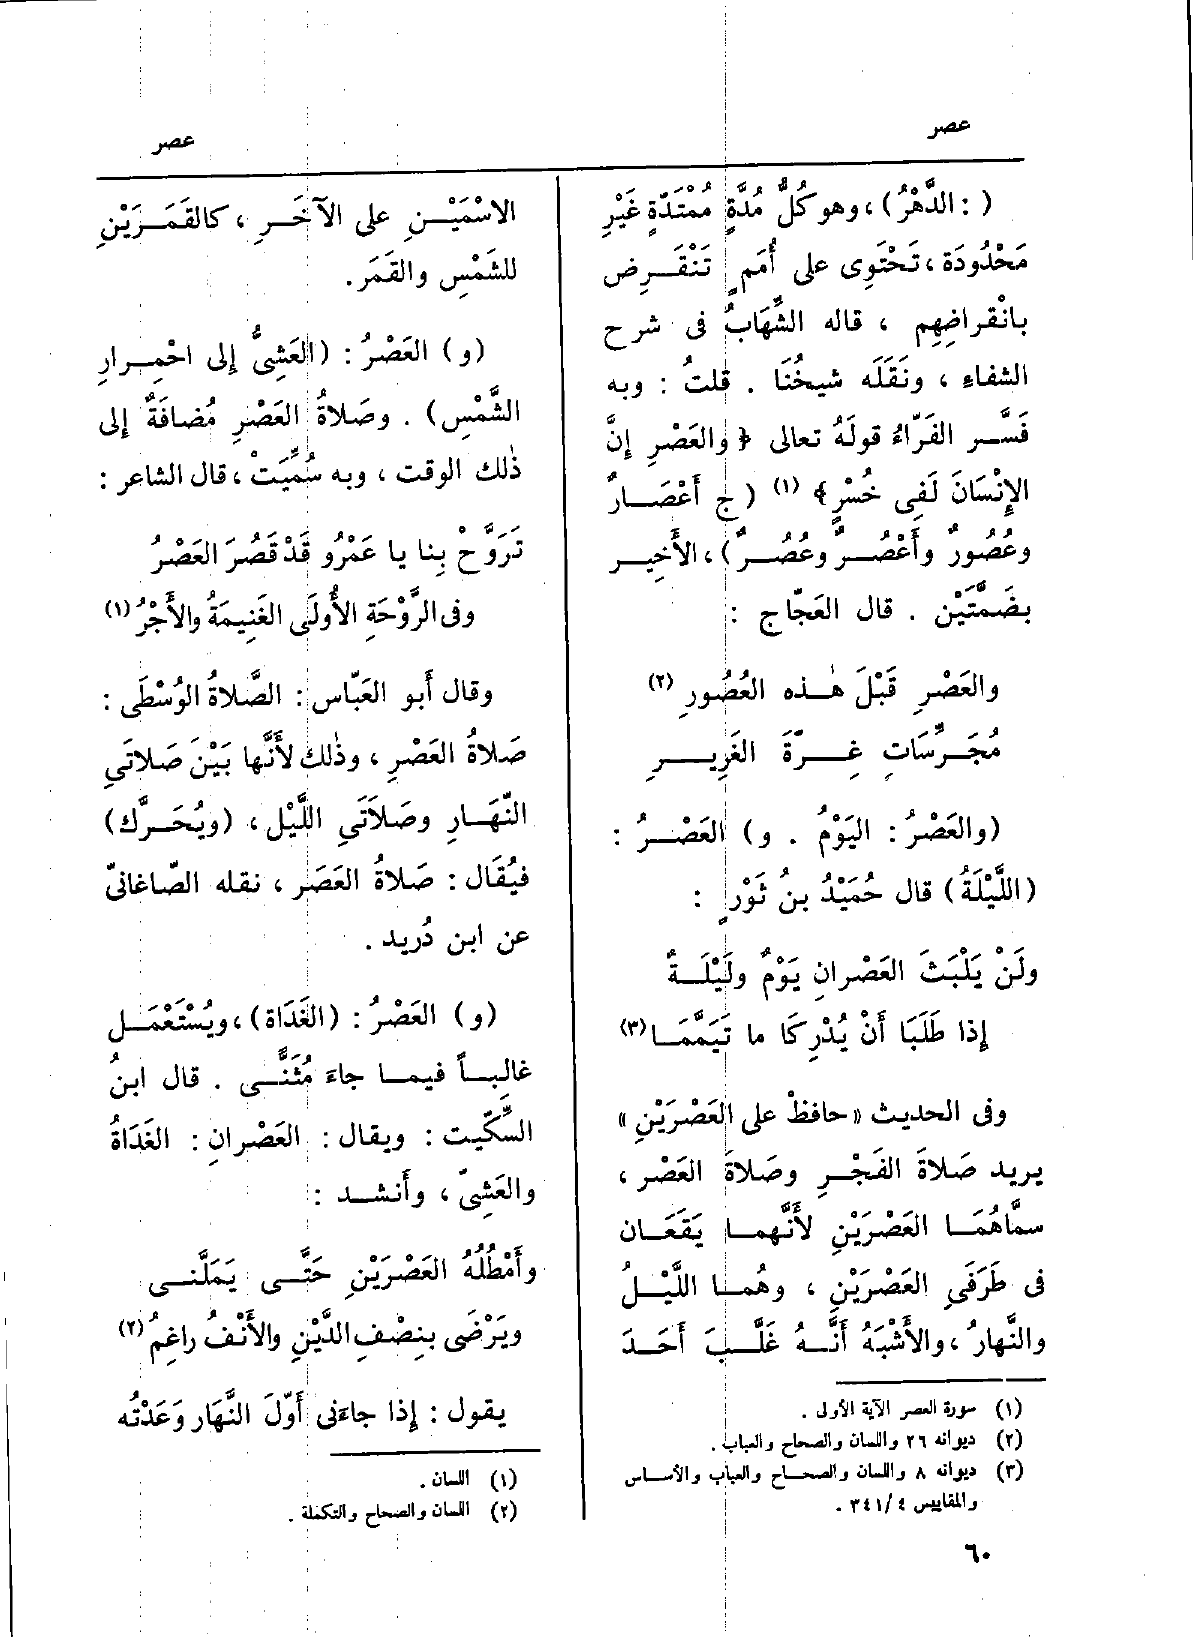 عصر
عصر
( : الدَّهْرُ) ، وهو كُلُّ مُدَّةٍ مُمْتَدَّةٍ غَيْرِ
مَحْدُودَة ، تَحْتَوِى على أُمَمٍ تَنْقَرِض
بانْقراضِهِم ، قاله الشِّهَابُ فى شرح
الشفاءِ ، ونَقَلَه شيخُنَا . قلتُ : وبه
فَسَّر الفَرّاءُ قولَهُ تعالى ﴿ والعَصْرِ إِنَّ
الإِنْسَانَ لَفِى خُسْرٍ﴾ (١) (ج أَعْصَارٌ
وعُصُورٌ وأَعْصُرٌ وعُصُرٌ) ، الأَخِير
بضَمَّتَيْن . قال العَجّاج :
والعَصْرِ قَبْلَ هٰذه العُصُورِ (٢)
مُجَرِّسَاتٍ غِرَّةَ الغَرِيرِ
(والعَصْرُ : اليَوْمُ . و) العَصْرُ :
(اللَّيْلَةُ) قال حُمَيْدُ بنُ ثَوْرٍ :
ولَنْ يَلْبَثَ العَصْرانِ يَوْمٌ ولَيْلَةٌ
إِذا طَلَبَا أَنْ يُدْرِكَا ما تَيَمَّمَا (٣)
وفى الحديث « حافظْ على العَصْرَيْنِ »
يريد صَلاةَ الفَجْرِ وصَلاةَ العَصْر ،
سمَّاهُمَا العَصْرَيْنِ لأَنَّهما يَقَعَان
فى طَرَفَيِ العَصْرَيْنِ ، وهُما اللَّيْلُ
والنَّهارُ ، والأَشْبَهُ أَنَّهُ غَلَّبَ أَحَدَ
(١) سورة العصر الآية الأولى .
(٢) ديوانه ٢٦ واللسان والصحاح والعباب .
(٣) ديوانه ٨ واللسان والصحاح والعباب والأساس
والمقاييس ٤ /٣٤١ .
الاسْمَيْنِ على الآخَرِ ، كالقَمَرَيْنِ
للشَمْسِ والقَمَر .
(و) العَصْرُ : (العَشِىُّ إلى احْمِرارِ
الشَّمْسِ) . وصَلاةُ العَصْرِ مُضافَةٌ إلى
ذٰلك الوقت ، وبه سُمِّيَتْ ، قال الشاعر :
تَرَوَّحْ بِنا يا عَمْرُو قَدْ قَصُرَ العَصْرُ
وفى الرَّوْحَةِ الأُولَى الغَنِيمَةُ والأَجْرُ (١)
وقال أَبو العَبّاس : الصَّلاةُ الوُسْطَى :
صَلاةُ العَصْرِ ، وذٰلك لأَنَّها بَيْنَ صَلاتَيِ
النّهَارِ وصَلاَتَيِ اللَّيْل ، (ويُحَرَّك)
فيُقَال : صَلاةُ العَصَر ، نقله الصّاغانىّ
عن ابن دُريد .
(و) العَصْرُ : (الغَدَاة) ، ويُسْتَعْمَل
غالِباً فيما جاءَ مُثَنًّى . قال ابنُ
السِّكِّيت : ويقال : العَصْرانِ : الغَدَاةُ
والعَشِىّ ، وأنشد :
وأَمْطُلُهُ العَصْرَيْنِ حَتَّى يَمَلَّنى
ويَرْضَى بنِصْفِ الدَّيْنِ والأَنْفُ راغِمُ (٢)
يقول : إِذا جاءَنى أَوّلَ النَّهَار وَعَدْتُه
(١) اللسان .
(٢) اللسان والصحاح والتكملة .
٦٠